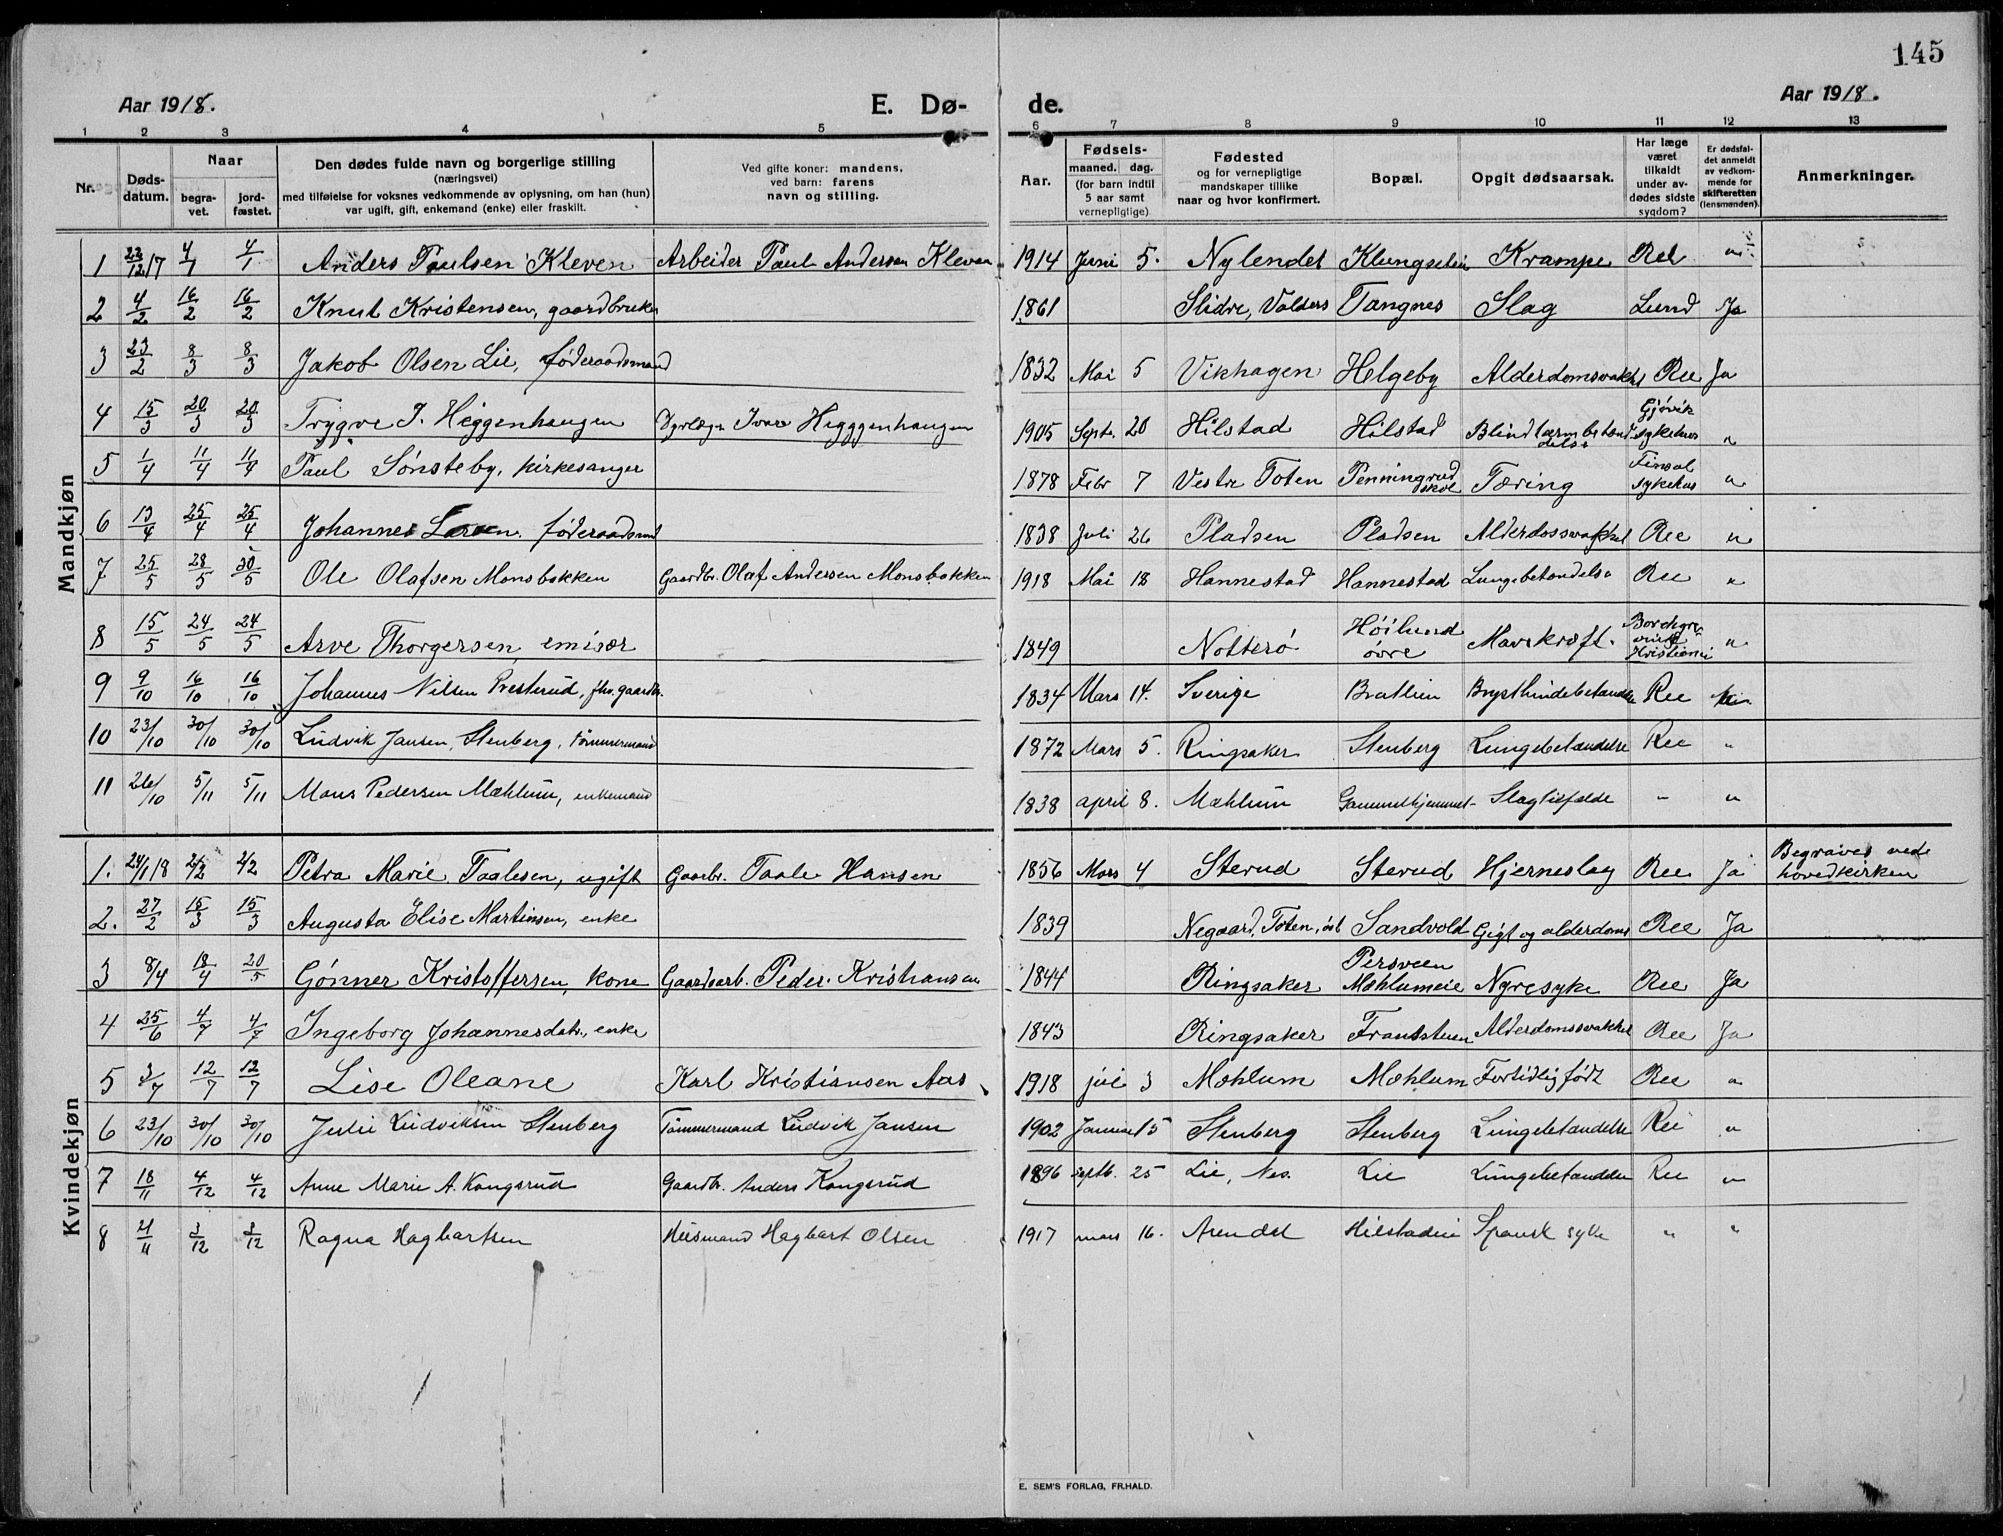 145
Aar 1918.
E. Dø-
de.
Aar 1918.
1 2 3 4 5 6 7 8 9 10 11 12 13
Nr.
Døds-
datum.
Naar
begra-
vet.
jord-
fæstet.
Den dødes fulde navn og borgerlige stilling
(næringsvei)
med tilføielse for voksnes vedkommende av oplysning, om han (hun)
var ugift, gift, enkemand (enke) eller fraskilt.
Ved gifte koner: mandens,
ved barn: farens
navn og stilling.
Aar.
Fødsels-
maaned. dag.
(for barn indtil
5 aar samt
vernepligtige)
Fødested
og for vernepligtige
mandskaper tillike
naar og hvor konfirmert.
Bopæl.
Opgit dødsaarsak.
Har læge
været
tilkaldt
under av-
dødes sidste
sygdom?
Er dødsfal-
det anmeldt
av vedkom-
mende for
skifteretten
(lensmanden).
Anmerkninger.
Mandkjøn
1 22/12 17 4/1 4/1 Anders Paulsen Kleven Arbeider Paul Andersen Kleven 1914 Juni 5. Nylendet Krampe
2 4/2 16/2 16/2 Knut Kristensen, gaardbruker 1861 Slidre, Valders Tangnes Slag Lund Ja
3 23/2 8/3 8/3 Jakob Olsen Lie, føderaadsmand 1832 Mai 5 Vikhagen Helgeby Alderdomsvakhet Ree Ja
4 15/3 20/3 20/3 Trygve I. Heggenhaugen Ivar Hegggenhaugen 1905 Septr. 20 Hilstad Hilstad Blindtarmbetænd
delse Gjøvik
sykehus "
5 1/4 11/4 11/4 Paul Sønsteby, kirkesanger 1878 Febr 7 Vestre Toten Penningrud
skole Tæring sykehus "
6 13/4 25/4 25/4 Johannes føderaadsmd 1838 Juli 26 Pladsen Pladsen Ree "
7 25/5 28/5 30/5 Ole Olafsen Monsbakken Gaardbr. Olaf Andersen Monsbakken 1918 Mai 18 Hannestad Hannestad Lungebetændelse Ree "
8 15/5 24/5 24/5 Arve Thorgersen, emisær 1849 Notterø Høilund
øvre Mavekræft. Kristiania "
9 9/10 16/10 16/10 Johannes Nilsen Presterud, fhv. gaardbr. 1834 Mars 14. Sverige Bratlien Brysthindebetændelse Ree
10 23/10 30/10 30/10 Ludvik Jansen, Stenberg, tømmermand 1872 Mars 5. Ringsaker Stenberg Lungebetændelse Ree "
11 26/10 5/11 5/11 Mons Pedersen Mæhlum, enkemand 1838 april 8. Mæhlum Gammelhjemmet Slagtilfælde " "
Kvindekjøn
1. 24/1 18 2/2 2/2 Petra Marie Taalesen, ugift Gaarbr. Taale Hansen 1856 Mars 4 Sterud Sterud Hjerneslag Ree Ja Begraves ved
hovedkirken
2. 27/2 15/3 15/3 Augusta Elise Martinsen, enke 1839 Negaard, Toten, øst Sandvold Gigt og alderdoms Ree Ja
3 8/4 18/4 20/5 Gønner Kristoffersen, kone Gaardarb. Peder Kristiansen 1844 Ringsaker Persveen
Mæhlumeie Nyresyke Ree Ja
4 25/6 4/7 4/7 Ingeborg Johannesdatr, enke 1843 Ringsaker Alderdomssvakhet Ree Ja
5 3/7 12/7 12/7 Lise Oleane Karl Kristiansen Aas 1918 juli 3 Mæhlum Mæhlum Fortidlig født Ree "
6 23/10 30/10 30/10 Julie Ludviksen Stenberg Tømmermand Ludvik Jansen 1902 Januar 15 Stenberg Stenberg Lungebetændelse Ree "
7 18/11 4/12 4/12 Anne Marie A. Kongsrud Gaardbr. Anders Kongsrud 1896 septb. 25 Lie, Nes. Lie Lungebetændelse Ree "
8 3/12 3/12 Ragna Hagbartsen Husmand Hagbart Olsen 1917 mars 16. Arendal Hilstadeie Spansk syke " "
E. SEM'S FORLAG, FR.HALD.